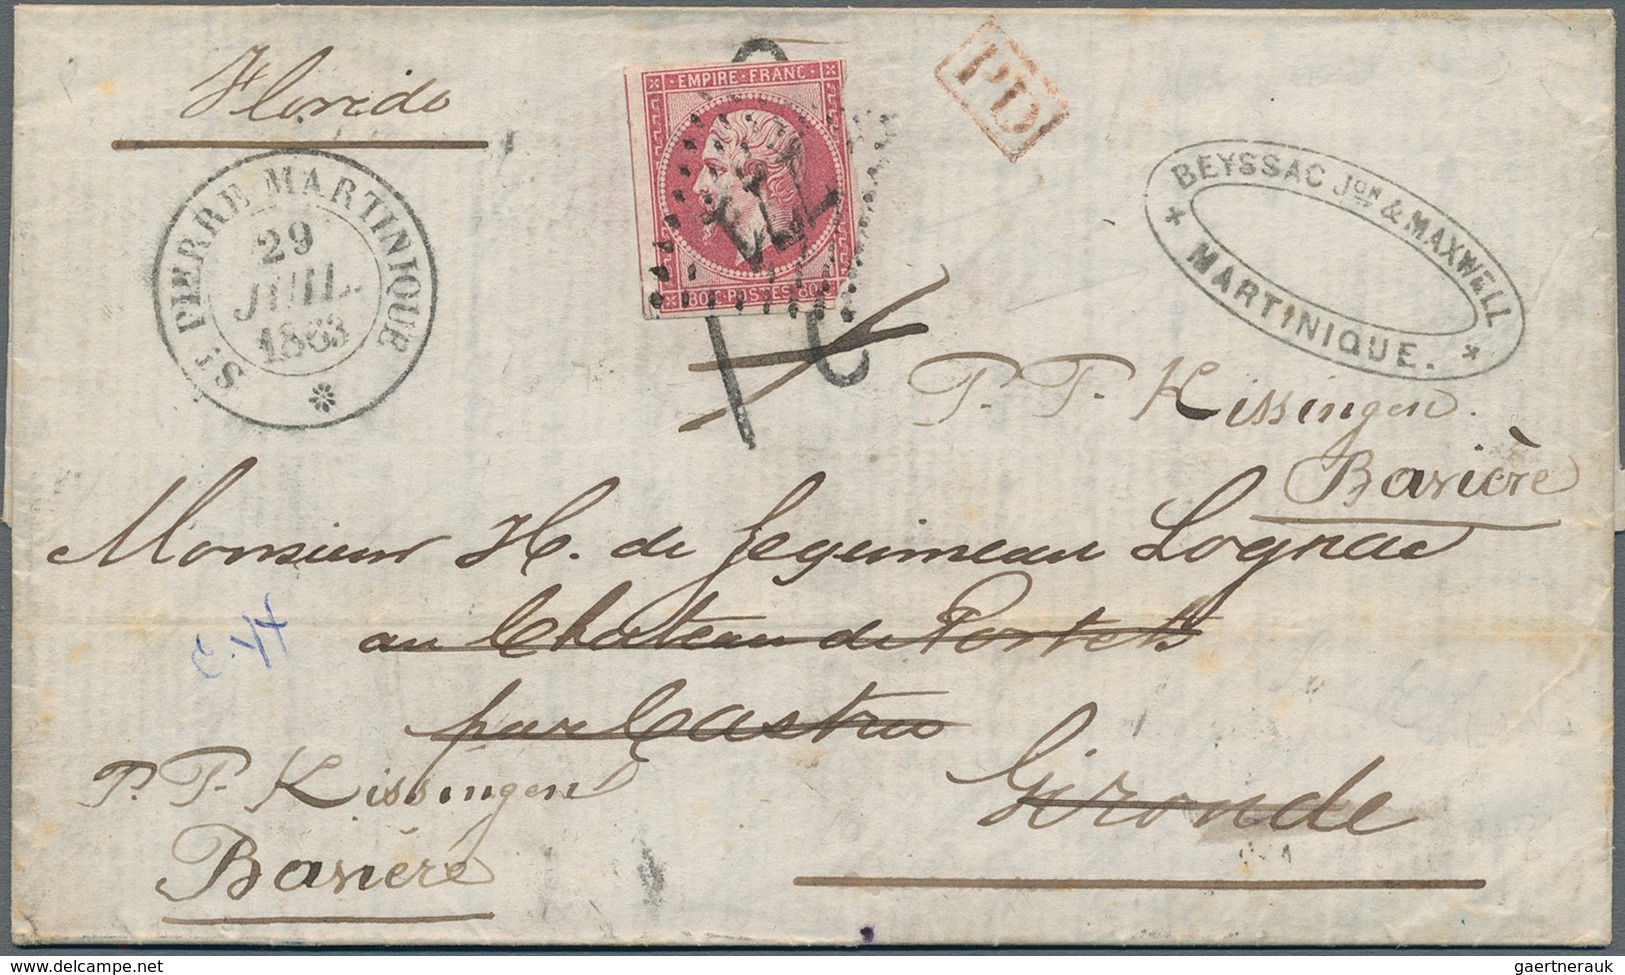 Florida
ST PIERRE MARTINIQUE
29
JUIL.
1863
EMPIRE FRANC
80c POSTES 80c
PD
BEYSSAC Jon & MAXWELL
MARTINIQUE.
P. P. Kissingen
Bavière
Monsieur H. de Lognac
au Château de Portets
par Castres
Gironde
P. P. Kissingen
Bavière
gaertnerauk